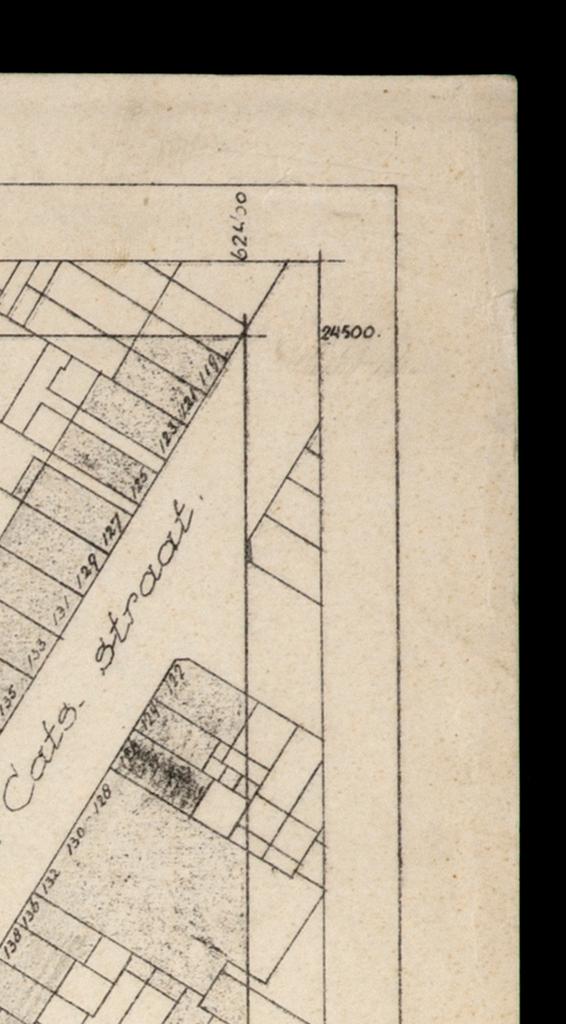 62400
24500.
119
121
123
125
127
129
131
133
135
Cats- straat.
122
124
128
130
132
136
138